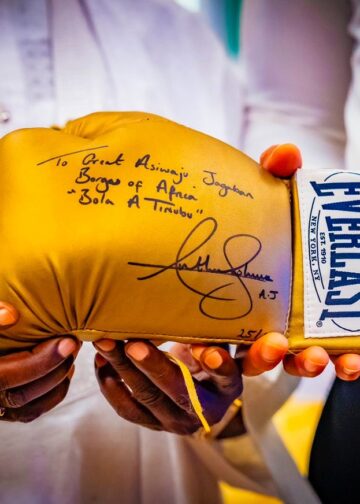 To Great Asiwaju Jagaban
Borgu of Africa
"Bola A Tinubu"
A-J
25/
EVERLAST
EST. 1910
NEW YORK, NY